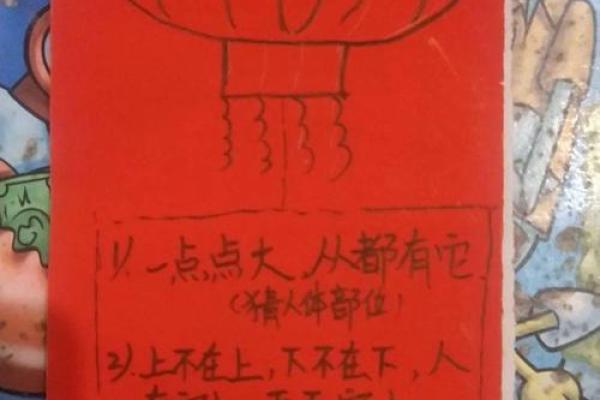 1). 一点点大, 从都有它.
(猜人体部位)
2). 上不在上, 下不在下, 人